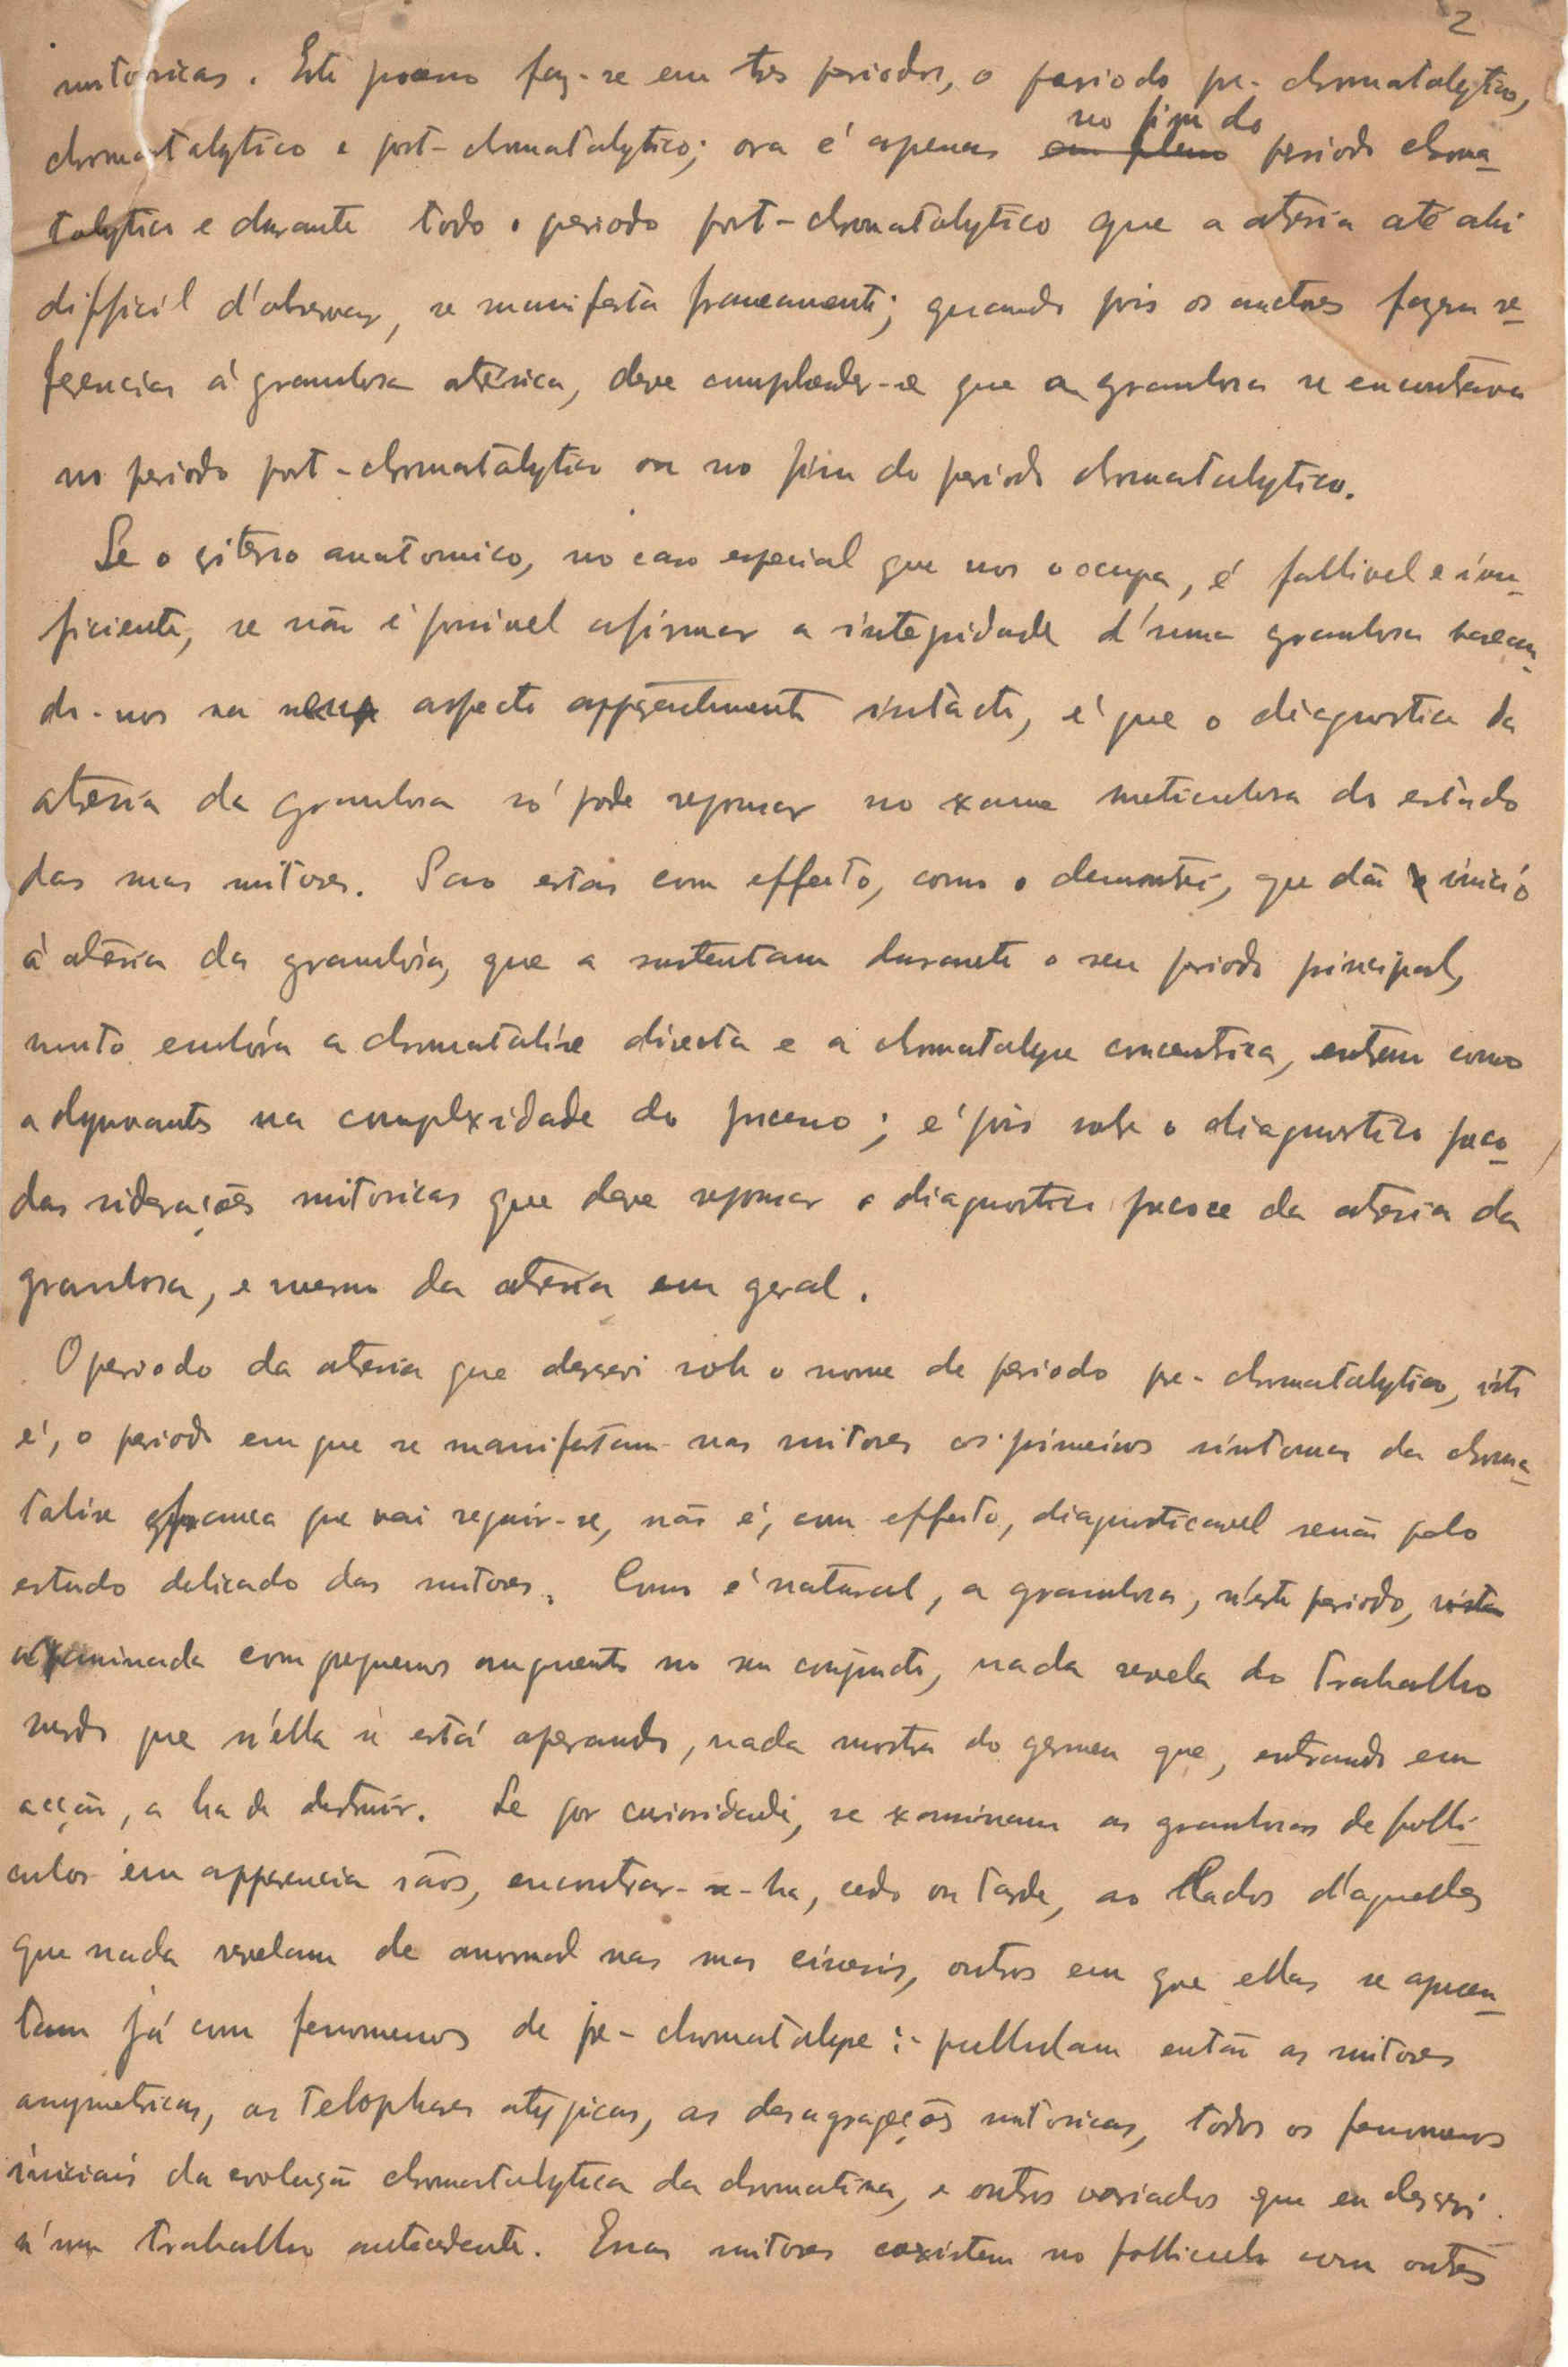 2
mitosicas. Este processo faz-se em tres periodos, o periodo pre-chromatolytico,
no fim do
chromatolytico e post-chromatolytico; ora é apenas em pleno periodo chroma-
tolytico e durante todo o periodo post-chromatolytico que a atresia até ahi
difficil d'observar, se manifesta francamente; quando pois os auctores fazem re-
ferencias á granulosa atrésica, deve comphender-se que a granulosa se encontrava
no periodo post-chromatolytico ou no fim do periodo chromatolytico.
Se o criterio anatomico, no caso especial que nos occupa, é fallivel e insu-
ficiente, se não é possivel afirmar a integridade d'uma granulosa basean-
do-nos no seu aspecto apparentemente intacto, é que o diagnostico da
atresia da granulosa só pode repousar no exame meticuloso do estado
das suas mitoses. Sao estas com effeito, como o demonstrei, que dão inicio
á atresia da granulosa, que a sustentam durante o seu periodo principal,
muito embóra a chromatolise directa e a chromatolyse concentrica, entrem como
adjuvantes na complexidade do processo; é pois sobre o diagnostico preco-
das siderações mitosicas que deve repousar o diagnostico precoce da atresia da
granulosa, e mesmo da atresia em geral.
O periodo da atresia que descrevi sob o nome de periodo pre-chromatolytico, isto
é, o periodo em que se manifestam nas mitoses os primeiros sintomas da chroma-
tolise franca que vai seguir-se, não é, com effeito, diagnosticavel senão pelo
estudo delicado das mitoses. Como é natural, a granulosa, n'este periodo, vista
examinada com pequenos augmentos no seu conjuncto, nada revela do trabalho
surdo que n'ella se está operando, nada mostra do germen que, entrando em
acção, a ha de destruir. Se por curiosidade, se examinam as granulosas de folli-
culos em apparencia sãos, encontrar-se-ha, cedo ou tarde, ao lados d'aquelles
que nada revelam de anormal nas suas cinesis, outros em que ellas se apresen-
tam já com fenomenos de pre-chromatolyse:- pullulam então as mitoses
asymetricas, as telophases atypicas, as desagregações mitosicas, todos os fenomenos
iniciais da evolução chromatolytica da chromatina, e outros variados que eu descrevi
n'um trabalho antecedente. Essas mitoses coexistem no folliculo com outras